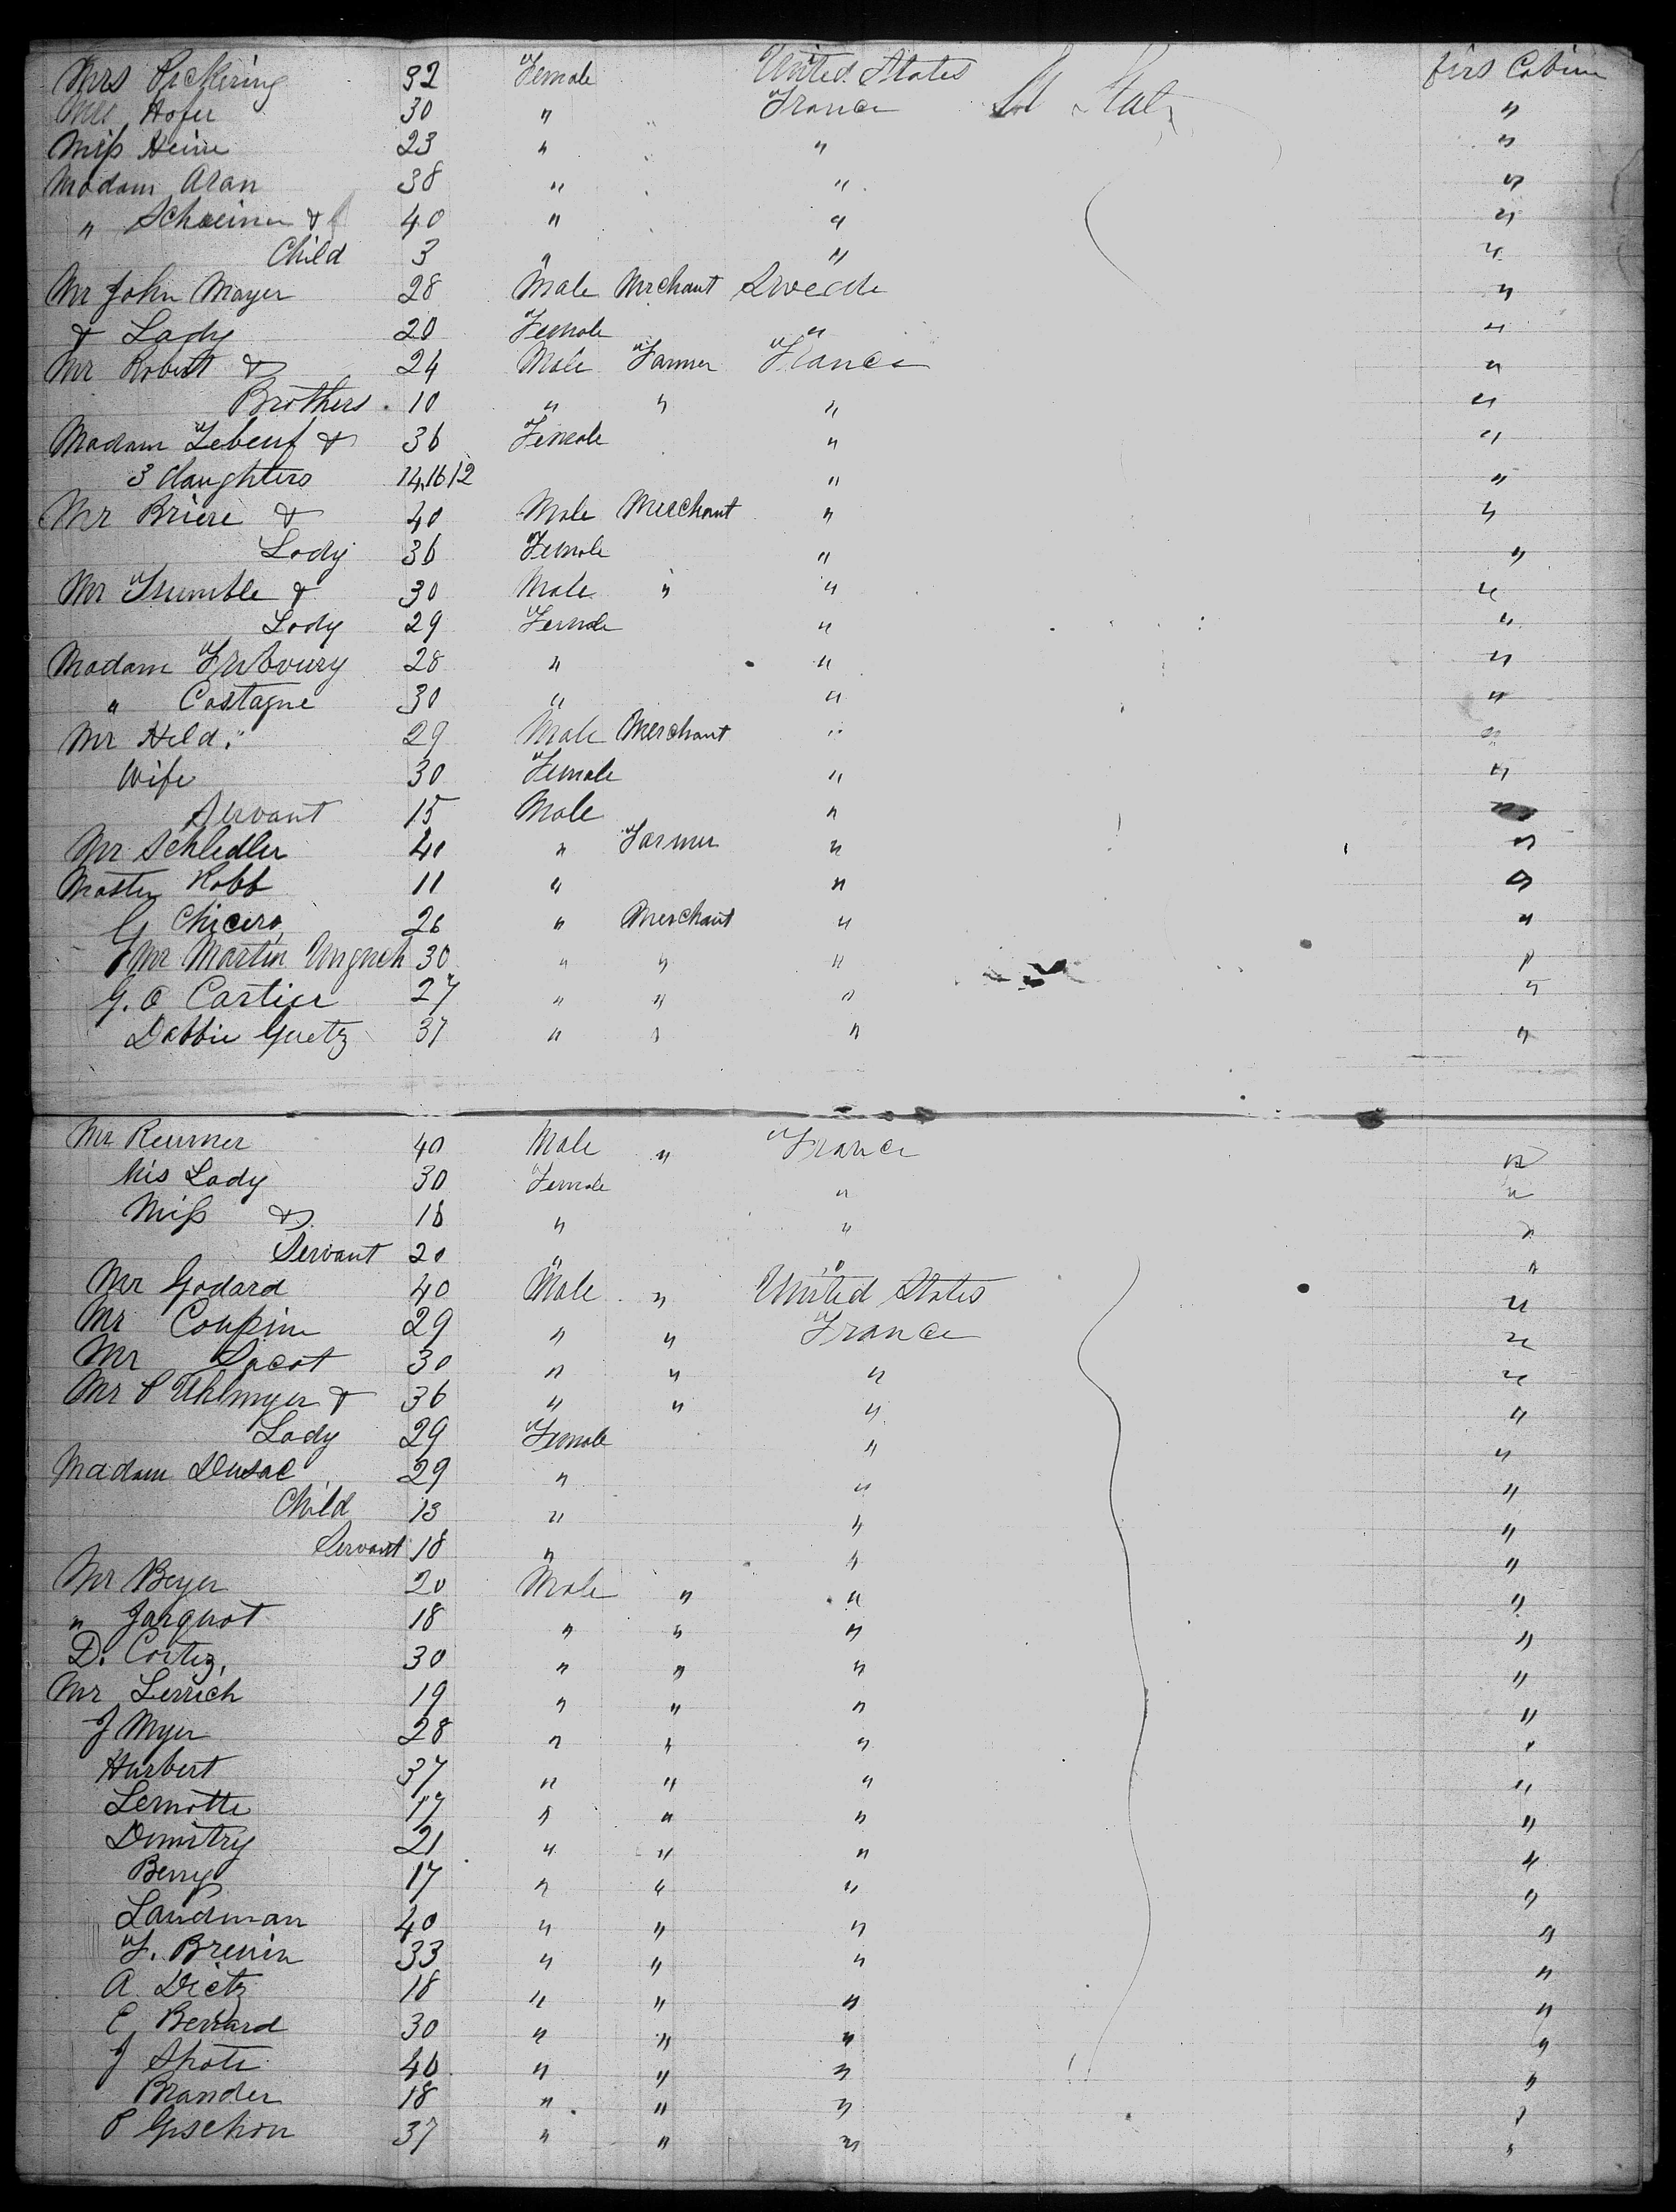 Mrs Pickering 32 Female United States firs Cabin
Mrs Hofer 30 " France U States "
Miss Heine 23 " " "
Madam Aran 38 " " "
" Schreiner & 40 " " "
Child 3 " " "
Mr John Mayer 28 Male Mrchant Swede "
& Lady 20 Female " "
Mr Robert & 24 Male Farmer France "
Brothers 10 " " " "
Madam Lebeuf & 36 Female " "
3 daughters 14,16 12 " "
Mr Briere & 40 Male Merchant " "
Lady 36 Female " "
Mr Trumble & 30 Male " " "
Lady 29 Female " "
Madam Fribourg 28 " " "
" Castagne 30 " " "
Mr Held " 29 Male Merchant " "
Wife 30 Female " "
Servant 15 Male " "
Mr Schledler 40 " Farmer " "
Master Robb 11 " " "
G Chicero 26 " Merchant " "
Mr Martin 30 " " " "
G. O Cartier 27 " " " "
Dabbie Guetz 37 " " " "
Mr Reumer 40 Male " France "
his Lady 30 Female " "
Miss & 18 " " "
Servant 20 " " "
Mr Godard 40 Male " United States "
Mr Coupin 29 " " France "
Mr Sacot 30 " " " "
Mr P Uhlmyer & 36 " " " "
Lady 29 Female " "
Madam Dusac 29 " " "
Child 13 " " "
Servant 18 " " "
Mr Beyer 20 Male " " "
" Jarquot 18 " " " "
D. Cortez, 30 " " " "
Mr Lerrich 19 " " " "
J Myer 28 " " " "
Hurbert 37 " " " "
Lemotte 17 " " " "
Dimitry 21 " " " "
Berry 17 " " " "
Landman 40 " " " "
F. Brenin 33 " " " "
A. Dietz 18 " " " "
E Berrard 30 " " " "
J Shote 40 " " " "
Brander 18 " " " "
P Gischon 37 " " " "